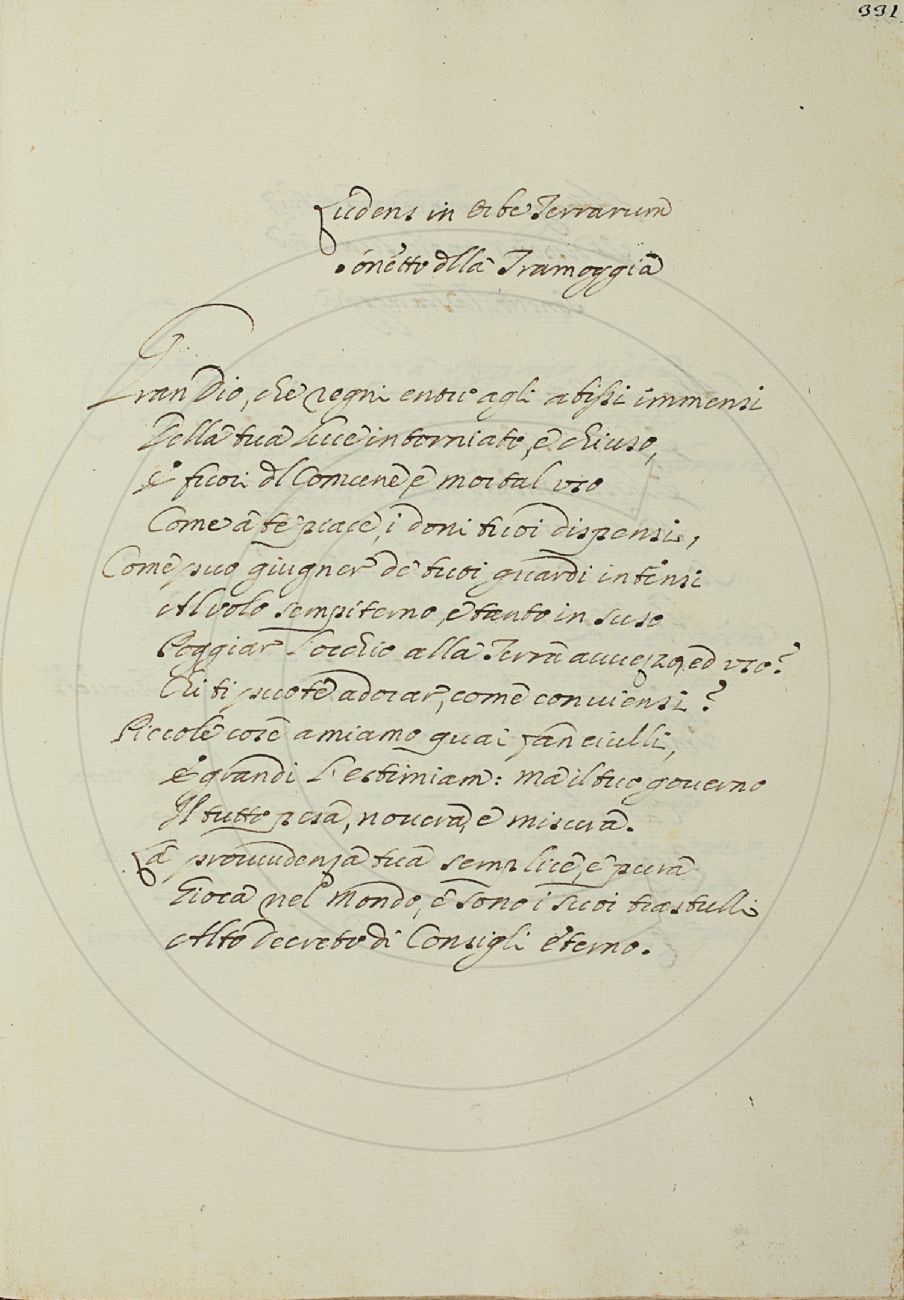 331
Ludens in Orbe Terrarum
Sonetto dlla Tramoggia
Gran Dio, che regni entro agli abissi immensi
Della tua Luce intorniato, e chiuso,
E fuori dl Comune, e mortal uso
Come a te piace, i doni tuoi dispensi,
Come può giugner de tuoi guardi intensi
Al volo sempiterno, e tanto in suso
Poggiar l'occhio alla Terra auuezzo, ed uso?
Chi ti puote adorar, come conviensi?
Piccole cose amiamo quai fanciulli,
E grandi l'estimiam: ma il tuo governo
Il tutto pesa, novera, e misura.
La prouuidenza tua semplice, e pura
Gioca nel Mondo, e sono i suoi trastulli
Alto decreto di Consigli eterno.